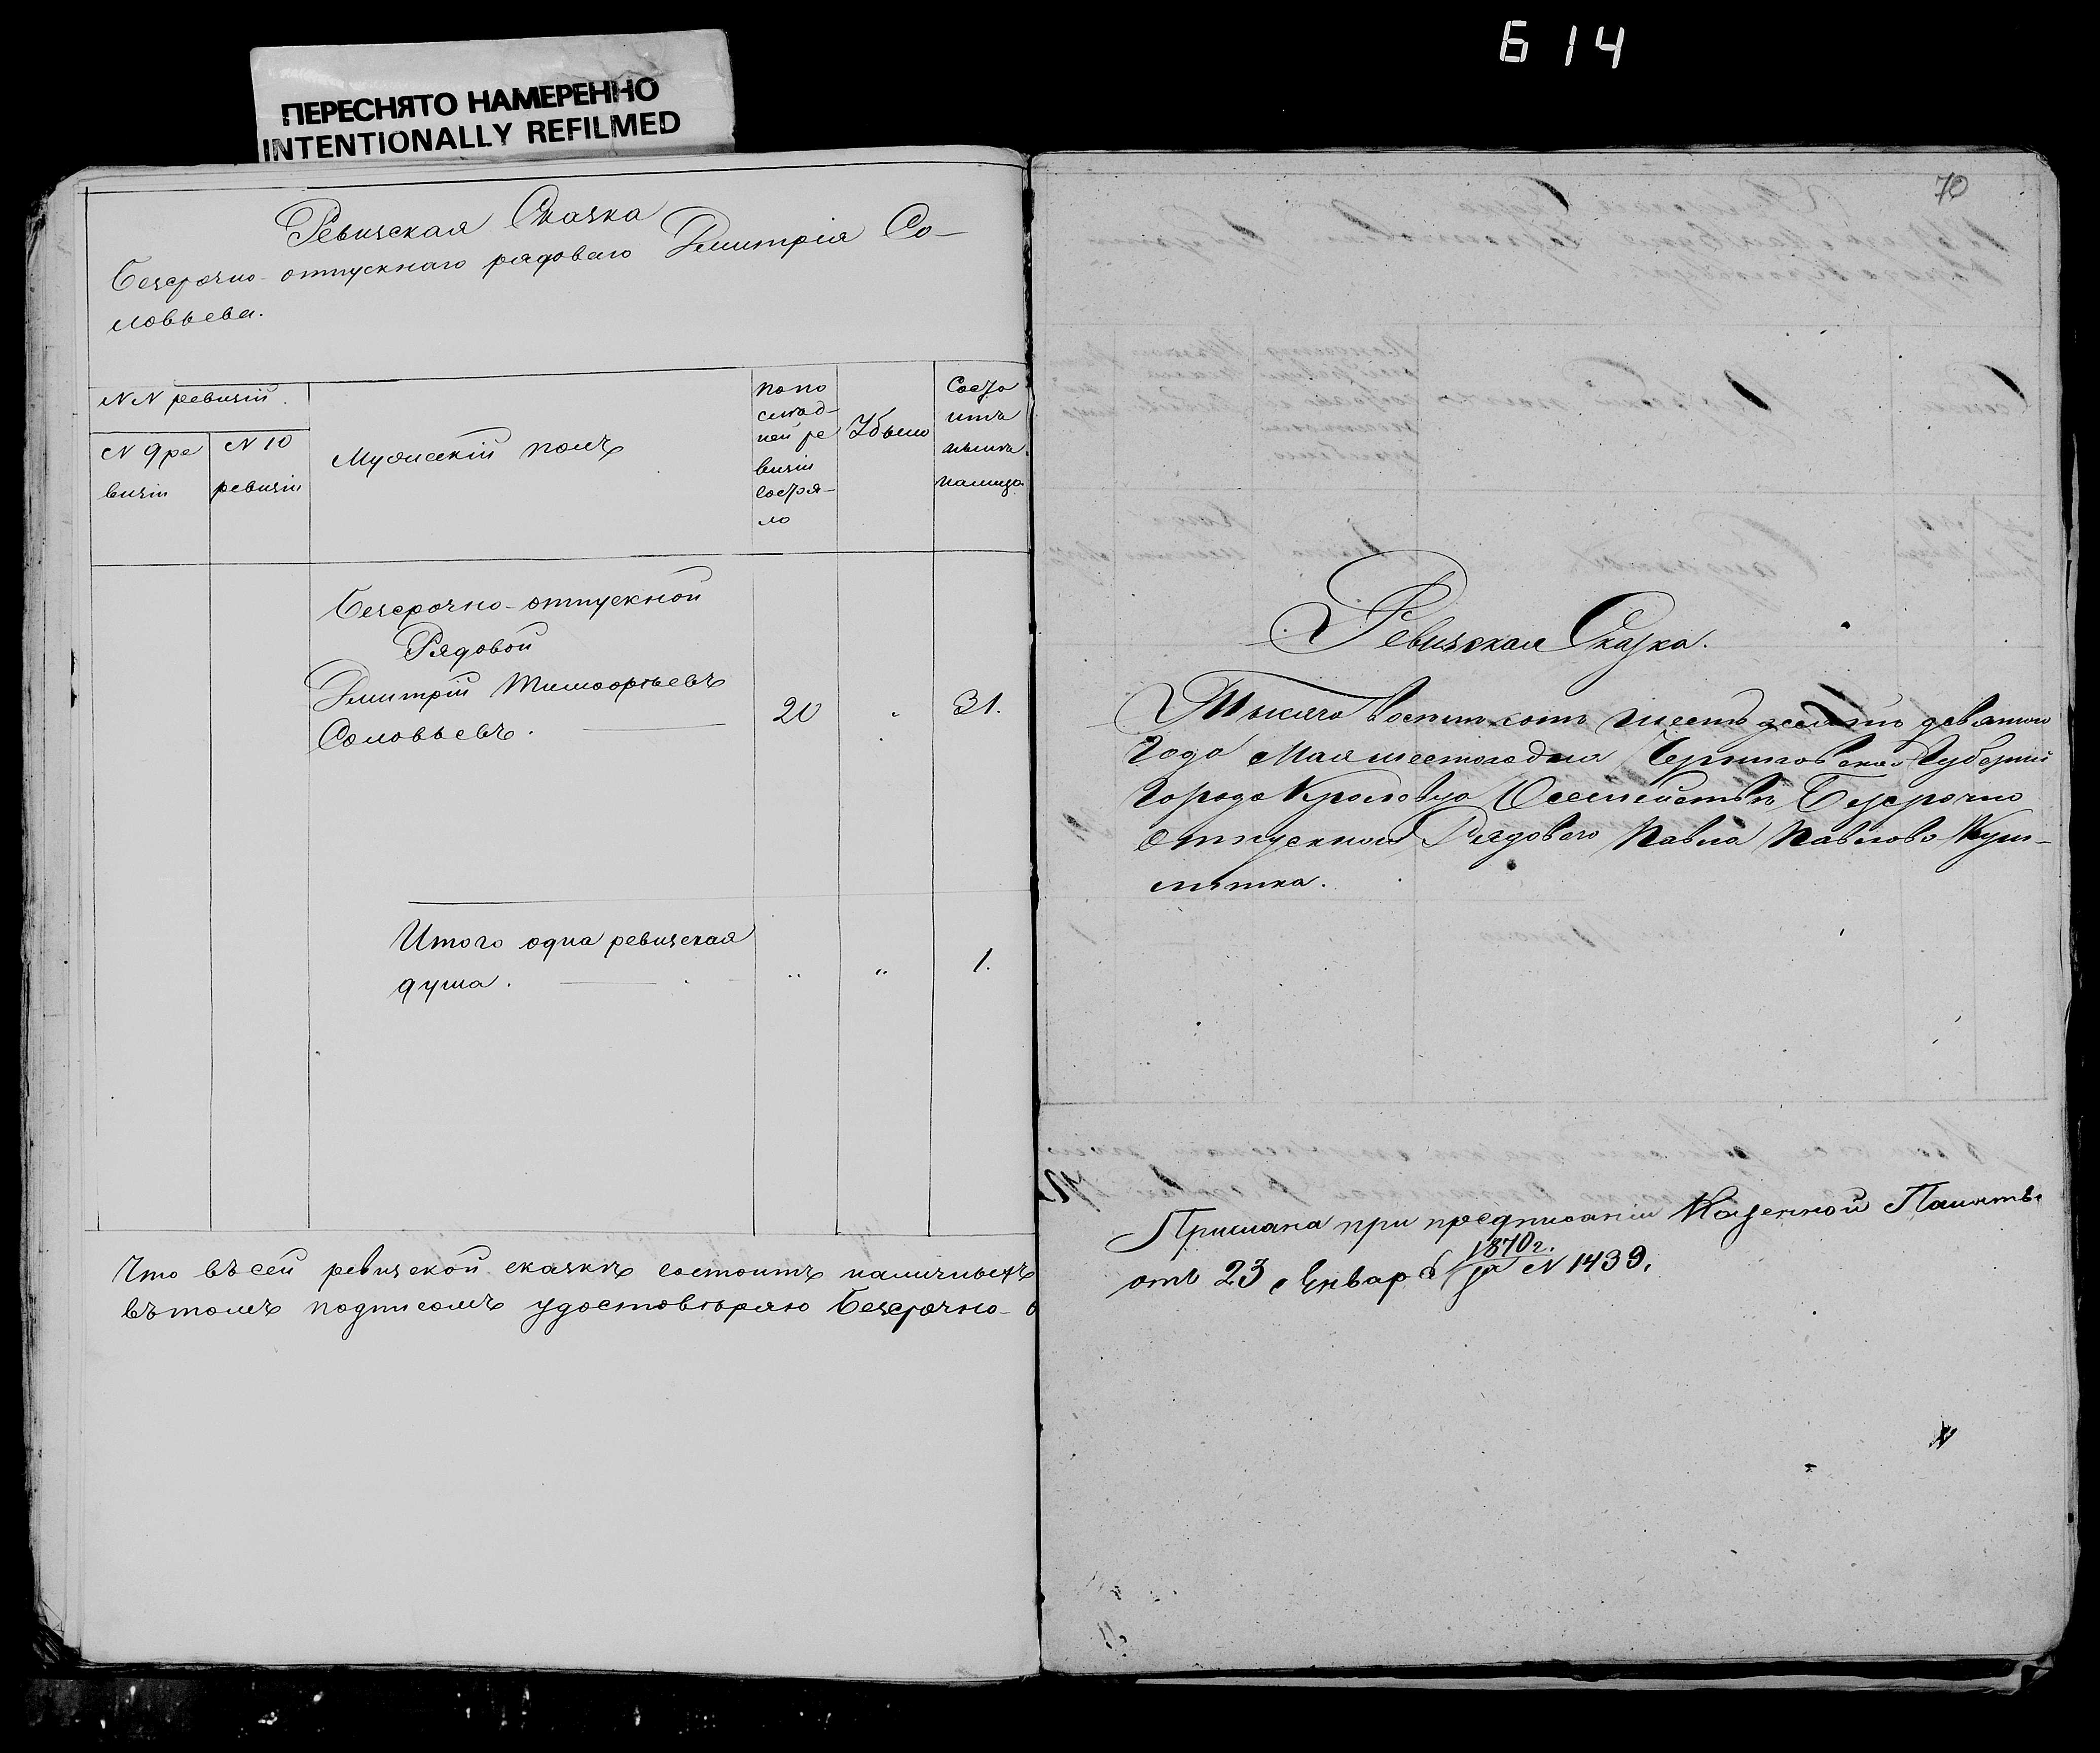 614
ПЕРЕСНЯТО НАМЕРЕННО
INTENTIONALLY REFILMED
Ревизская Сказка
безсрочно-отпускнаго рядоваго Дмитрія Со-
ловьева.
NN ревизіи.
N 9 ре
визіи
N 10
ревизіи
Мужескій полъ
По по
след-
ней ре
визіи
состоя-
ло
Убыло
Состо
итъ
нынѣ
на лицо
Безсрочно-отпускной
Рядовой
Дмитрій Тимоофѣевъ
Соловьевъ.
20
31.
Итого одна ревизская
душа.
1.
Что въ сей ревизской сказкѣ состоитъ наличныхъ
въ томъ подписомъ удостовѣряю безсрочно-о
70
Ревизская Сказка.
Тысяча восемьсотъ шестьдесятъ девятого
года Мая шестого дня Черниговской Губерніи
Города Кролевца О семействѣ Безсрочно
Отпускной Рядового Павла Павлова
Прислана при предписаніи Казенной Палаты
отъ 23 Января 1870 г. N 1439.